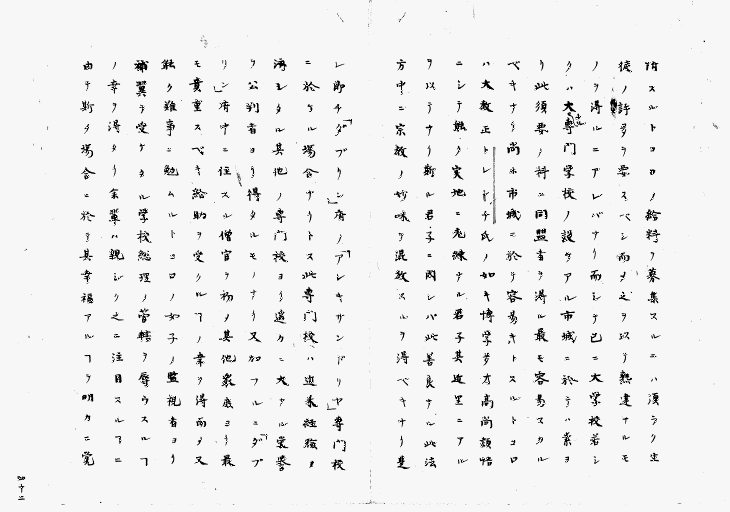 附スルトコロノ給料ヲ募集スルニハ須ラク生
徒ノ許多ヲ要スベシ而メ之ヲ以テ熟達ナルモ
ノヲ得ルニアレバナリ而シテ已ニ大学校若シ
クハ大専門学校ノ設ケアル市城ニ於テハ素ヨ
リ此須要ノ科ニ同盟者ヲ得ル最モ容易スカル
ベキナリ尚ホ市城ニ於テ容易キトスルトコロ
ハ大教正トレンチ氏ノ如キ博学多才高尚頴悟
ニシテ熟ク実地ニ老練ナル君子其近里ニアル
ヲ以テナリ斯ル君子ニ因レバ此善良ナル此法
方中ニ宗教ノ妙味ヲ混教スルヲ得ベキナリ是
レ即チ「ダブリン」府ノ「アレキサンドリヤ」専門校
ニ於ケル場合ナリトス此専門校ハ近来経験ヲ
済ヨタル其他ノ専門校ヨリ遥カニ大ナル栄誉
ヲ公判者ヨリ得タルモノナリ又加フルニ「ダブ
リン」府中ニ住スル僧官ヲ初メ其他衆庶ヨリ最
モ貴重スベキ給助ヲ受クルヿノ幸ヲ得而メ又
能ク雑事ニ勉ムルトコロノ女子ノ監視者ヨリ
補翼ヲ受ケタル学校総理ノ管轄ヲ辱ウスルヿ
ノ幸ヲ得タリ余輩ハ親シク之ニ注目スルヿニ
由テ斯ル場合ニ於テ其幸福アルヿヲ明カニ覚
四十二